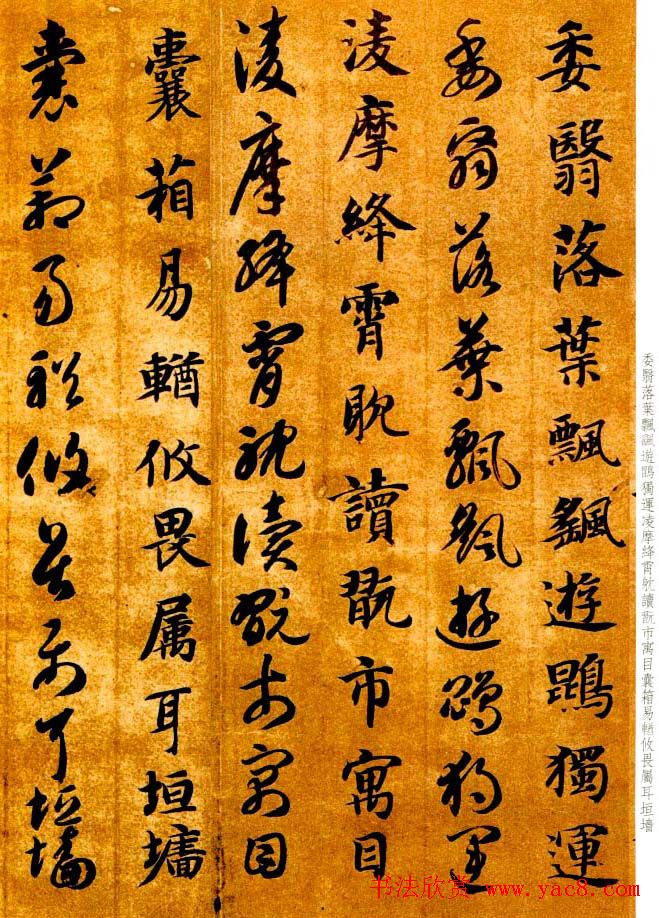 委翳落葉飄颻遊鵾獨運凌摩絳霄耽讀翫市寓目囊箱易輶攸畏屬耳垣墻
委翳落葉飄颻遊鵾獨運
委翳落葉飄颻遊鵾獨運
淩摩絳霄耽讀翫市寓目
淩摩絳霄耽讀翫市寓目
囊箱易輶攸畏属耳垣墻
囊箱易輶攸畏属耳垣墻
书法欣赏 www.yac8.com